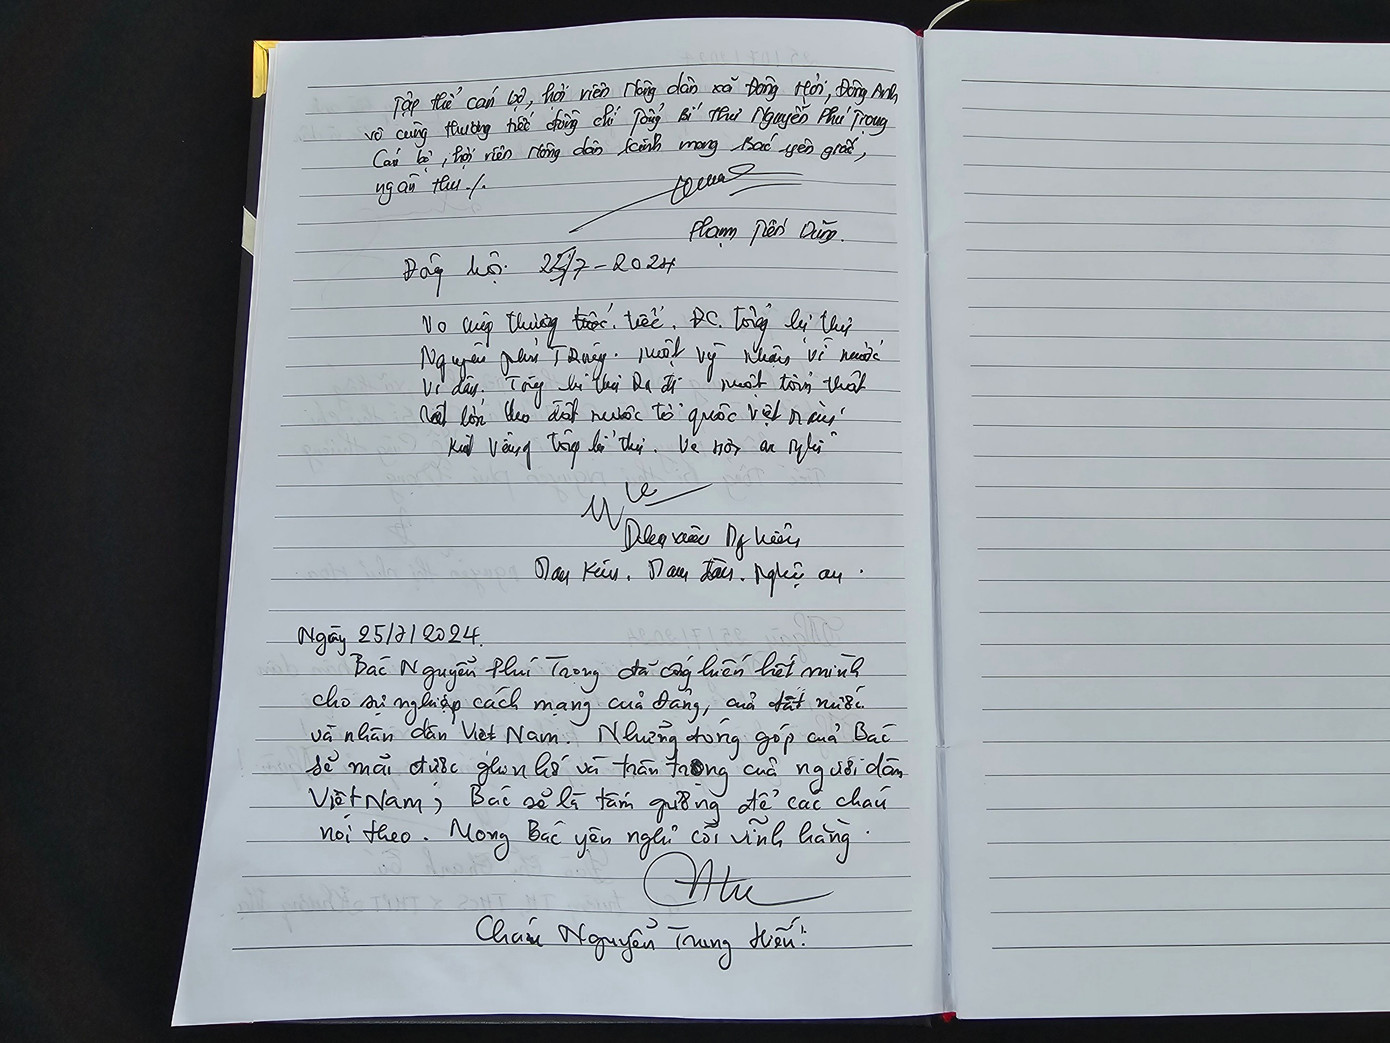 Tập thể cán bộ, hội viên Nông dân xã Đông Hội, Đông Anh
vô cùng thương tiếc đồng chí Tổng Bí thư Nguyễn Phú Trọng
Cán bộ, hội viên Nông dân kính mong Bác yên giấc,
ngàn thu./.
Phạm Tiến Dũng.
Đông hội: 25/7-2024
Vô cùng thương tiếc. ĐC. tổng bí thư
Nguyễn phú Trọng. một vỹ nhân vì nước
vì dân. Tổng bí thư Ra đi một tổn thất
lớn cho đất nước tổ quốc việt nam
Kính Viếng tổng bí thư. Về nơi an nghỉ
Nam Kim. Nam đàn. Nghệ an.
Ngày 25/7/2024.
Bác Nguyễn Phú Trọng đã cống hiến hết mình
cho sự nghiệp cách mạng của Đảng, của đất nước
và nhân dân Việt Nam. Những đóng góp của Bác
sẽ mãi được ghi nhớ và trân trọng của người dân
Việt Nam; Bác sẽ là tấm gương để các cháu
noi theo. Mong Bác yên nghỉ cõi vĩnh hằng.
Cháu Nguyễn Trung Hiếu!